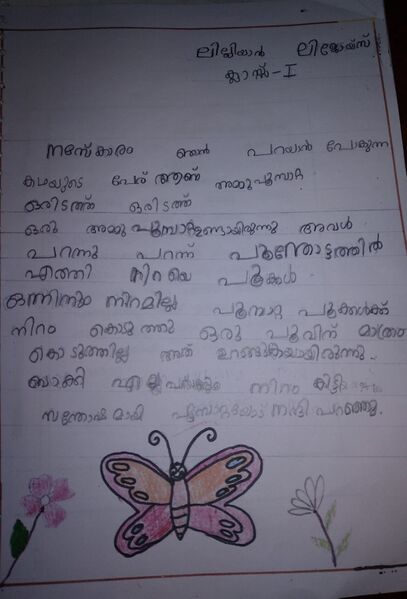 ലില്ലിയാൻ ലിജോയ്സ്
ക്ലാസ്സ് - I
നമസ്കോരം ഞാൻ പറയാൻ പോകുന്ന
കഥയുടെ പേര് ആണ് അമ്മുപൂമ്പാറ്റ
ഒരിടത്ത് ഒരിടത്ത്
ഒരു അമ്മു പൂമ്പാറ്റഉണ്ടായിരുന്നു അവൾ
പറന്നു പറന്ന് പൂന്തോട്ടത്തിൽ
എത്തി നിറയെ പൂക്കൾ
ഒന്നിനും നിറമില്ല പൂമ്പാറ്റ പൂക്കൾക്ക്
നിറം കൊടുത്തു ഒരു പൂവിന് മാത്രം
കൊടുത്തില്ല അത് ഉറങ്ങുകയായിരുന്നു.
ബാക്കി എല്ലാ നിറം കിട്ടി
സന്തോഷമായി പൂമ്പാറ്റയോട് നന്ദി പറഞ്ഞു.